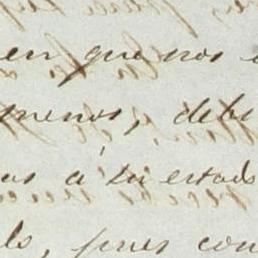 en que nos
menos, debi
as á tu estado
ls, pues con